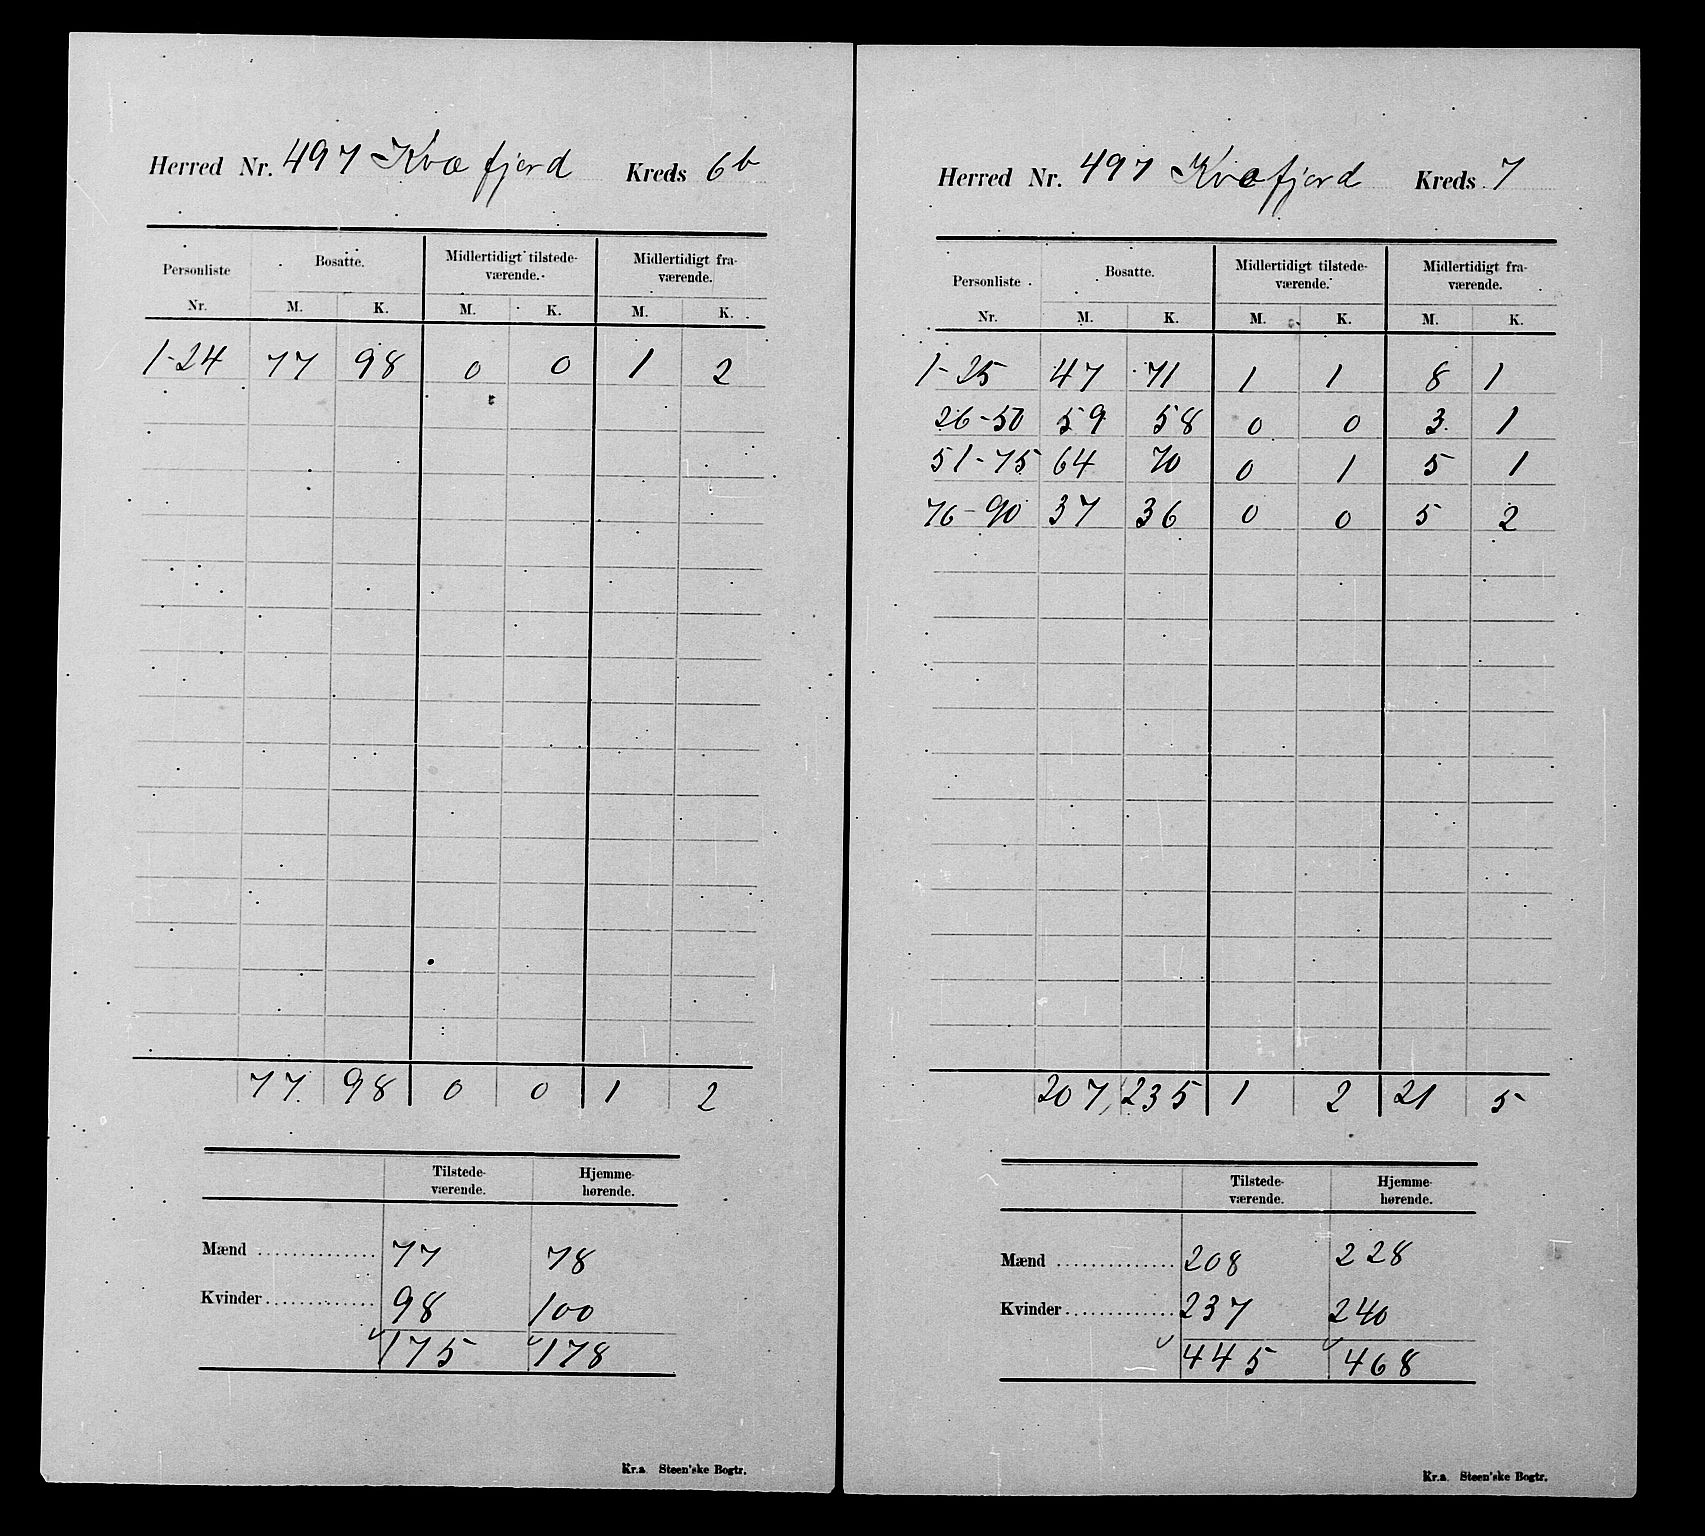 Herred Nr. 497 Kvæfjord Kreds 6b
Personliste Bosatte. Midlertidigt tilstede- Midlertidigt fra-
værende. værende.
Nr. M. K. M. K. M. K.
1-24 77 98 0 0 1 2
77 98 0 0 1 2
Tilstede- Hjemme-
værende. hørende.
Mænd .............. 77 78
Kvinder ............. 98 100
175 178
Kr.a. Steen'ske Bogtr.
Herred Nr. 497 Kvæfjord Kreds 7
Personliste Bosatte. Midlertidigt tilstede- Midlertidigt fra-
værende. værende.
Nr. M. K. M. K. M. K.
1-25 47 71 1 1 8 1
26-50 59 58 0 0 3 1
51-75 64 70 0 1 5 1
76-90 37 36 0 0 5 2
207 235 1 2 21 5
Tilstede- Hjemme-
værende. hørende.
Mænd .............. 208 228
Kvinder ............. 237 240
445 468
Kr.a. Steen'ske Bogtr.